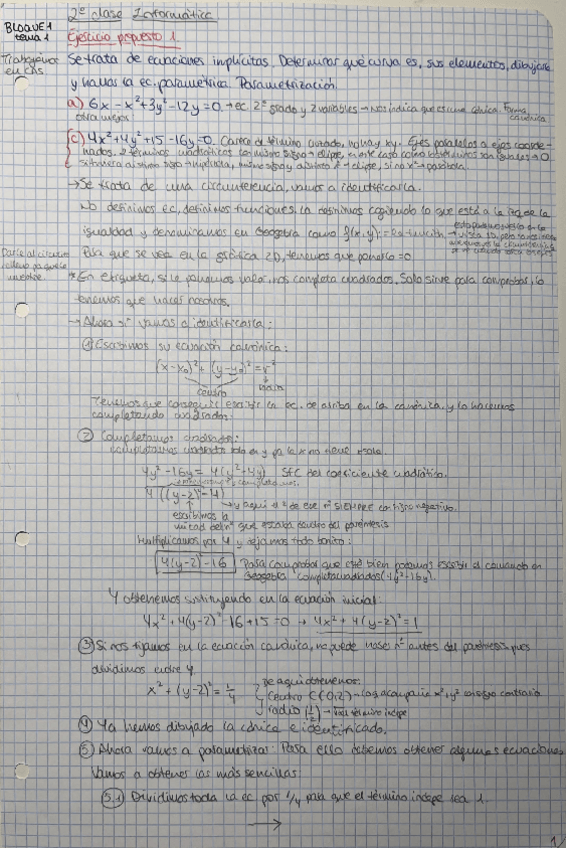 2ª clase Informática
BLOQUE 1
tema 1
Ejercicio propuesto 1
Trabajamos
en CAS
Se trata de ecuaciones implícitas. Determinar qué curva es, sus elementos, dibujarla
y hallar la ec. paramétrica. Parametrización
a) 6x - x² + 3y² - 12y = 0 → ec. 2º grado y 2 variables → nos indica que es una cónica. Forma
canónica
otra mejor
c) 4x² + 4y² + 15 - 16y = 0. Carece de término cruzado, no hay xy. Ejes paralelos a ejes coorde-
nados. 2 términos cuadráticos con mismo signo → elipse, en este caso como coeficientes son iguales → O
si tuviera distinto signo → hipérbola, mismo signo y distinto → elipse, si no x² → parábola.
→ Se trata de una circunferencia, vamos a identificarla.
No definimos ec, definimos funciones. La definimos cogiendo lo que está a la izq de la
igualdad y denominamos en Geogebra como f(x,y):= esta función
Para que se vea en la gráfica 2D, tenemos que ponerla = 0
Darle al circulo
relleno para que se
muestre.
* En etiqueta, si le ponemos valor, nos completa cuadrados. Solo sirve para comprobar, lo
tenemos que hacer nosotros.
→ Ahora sí vamos a identificarla:
① Escribimos su ecuación canónica:
(x-x₀)² + (y-y₀)² = r²
centro radio
Tenemos que conseguir escribir la ec. de arriba en la canónica, y lo hacemos
completando cuadrados.
② Completamos cuadrados:
completamos cuadrados solo en y pq la x no tiene resto.
4y² - 16y = 4(y² - 4y) SFC del coeficiente cuadrático.
4((y-2)² - 4)
→ y aquí el 2 de ese nº SIEMPRE con signo negativo.
escribimos la
mitad del nº que estaba dentro del paréntesis
Multiplicamos por 4 y dejamos todo bonito:
4(y-2)² - 16 Para comprobar que esté bien podemos escribir el comando en
Geogebra completacuadrados(4y²-16y)
Y obtenemos sustituyendo en la ecuación inicial:
4x² + 4(y-2)² - 16 + 15 = 0 → 4x² + 4(y-2)² = 1
③ Si nos fijamos en la ecuación canónica, no puede haber nº antes del paréntesis, pues
dividimos entre 4.
x² + (y-2)² = 1/4
De aquí obtenemos:
Centro C(0,2) → Lo q acompaña x² e y² con signo contrario
radio (1/2) → término indepe
④ Ya hemos dibujado la cónica e identificado.
⑤ Ahora vamos a parametrizar: Para ello debemos obtener algunas ecuaciones
Vamos a obtener las más sencillas:
5.1 Dividimos toda la ec por 1/4 para que el término indepe sea 1.
→
1